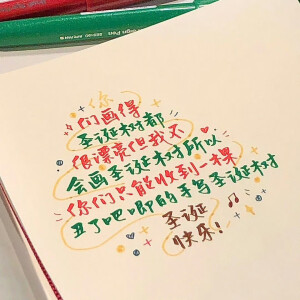 你
们画得
圣诞树都
很漂亮但我不
会画圣诞树所以
你们只能收到一棵
丑了吧唧的手写圣诞树
圣诞
快乐!